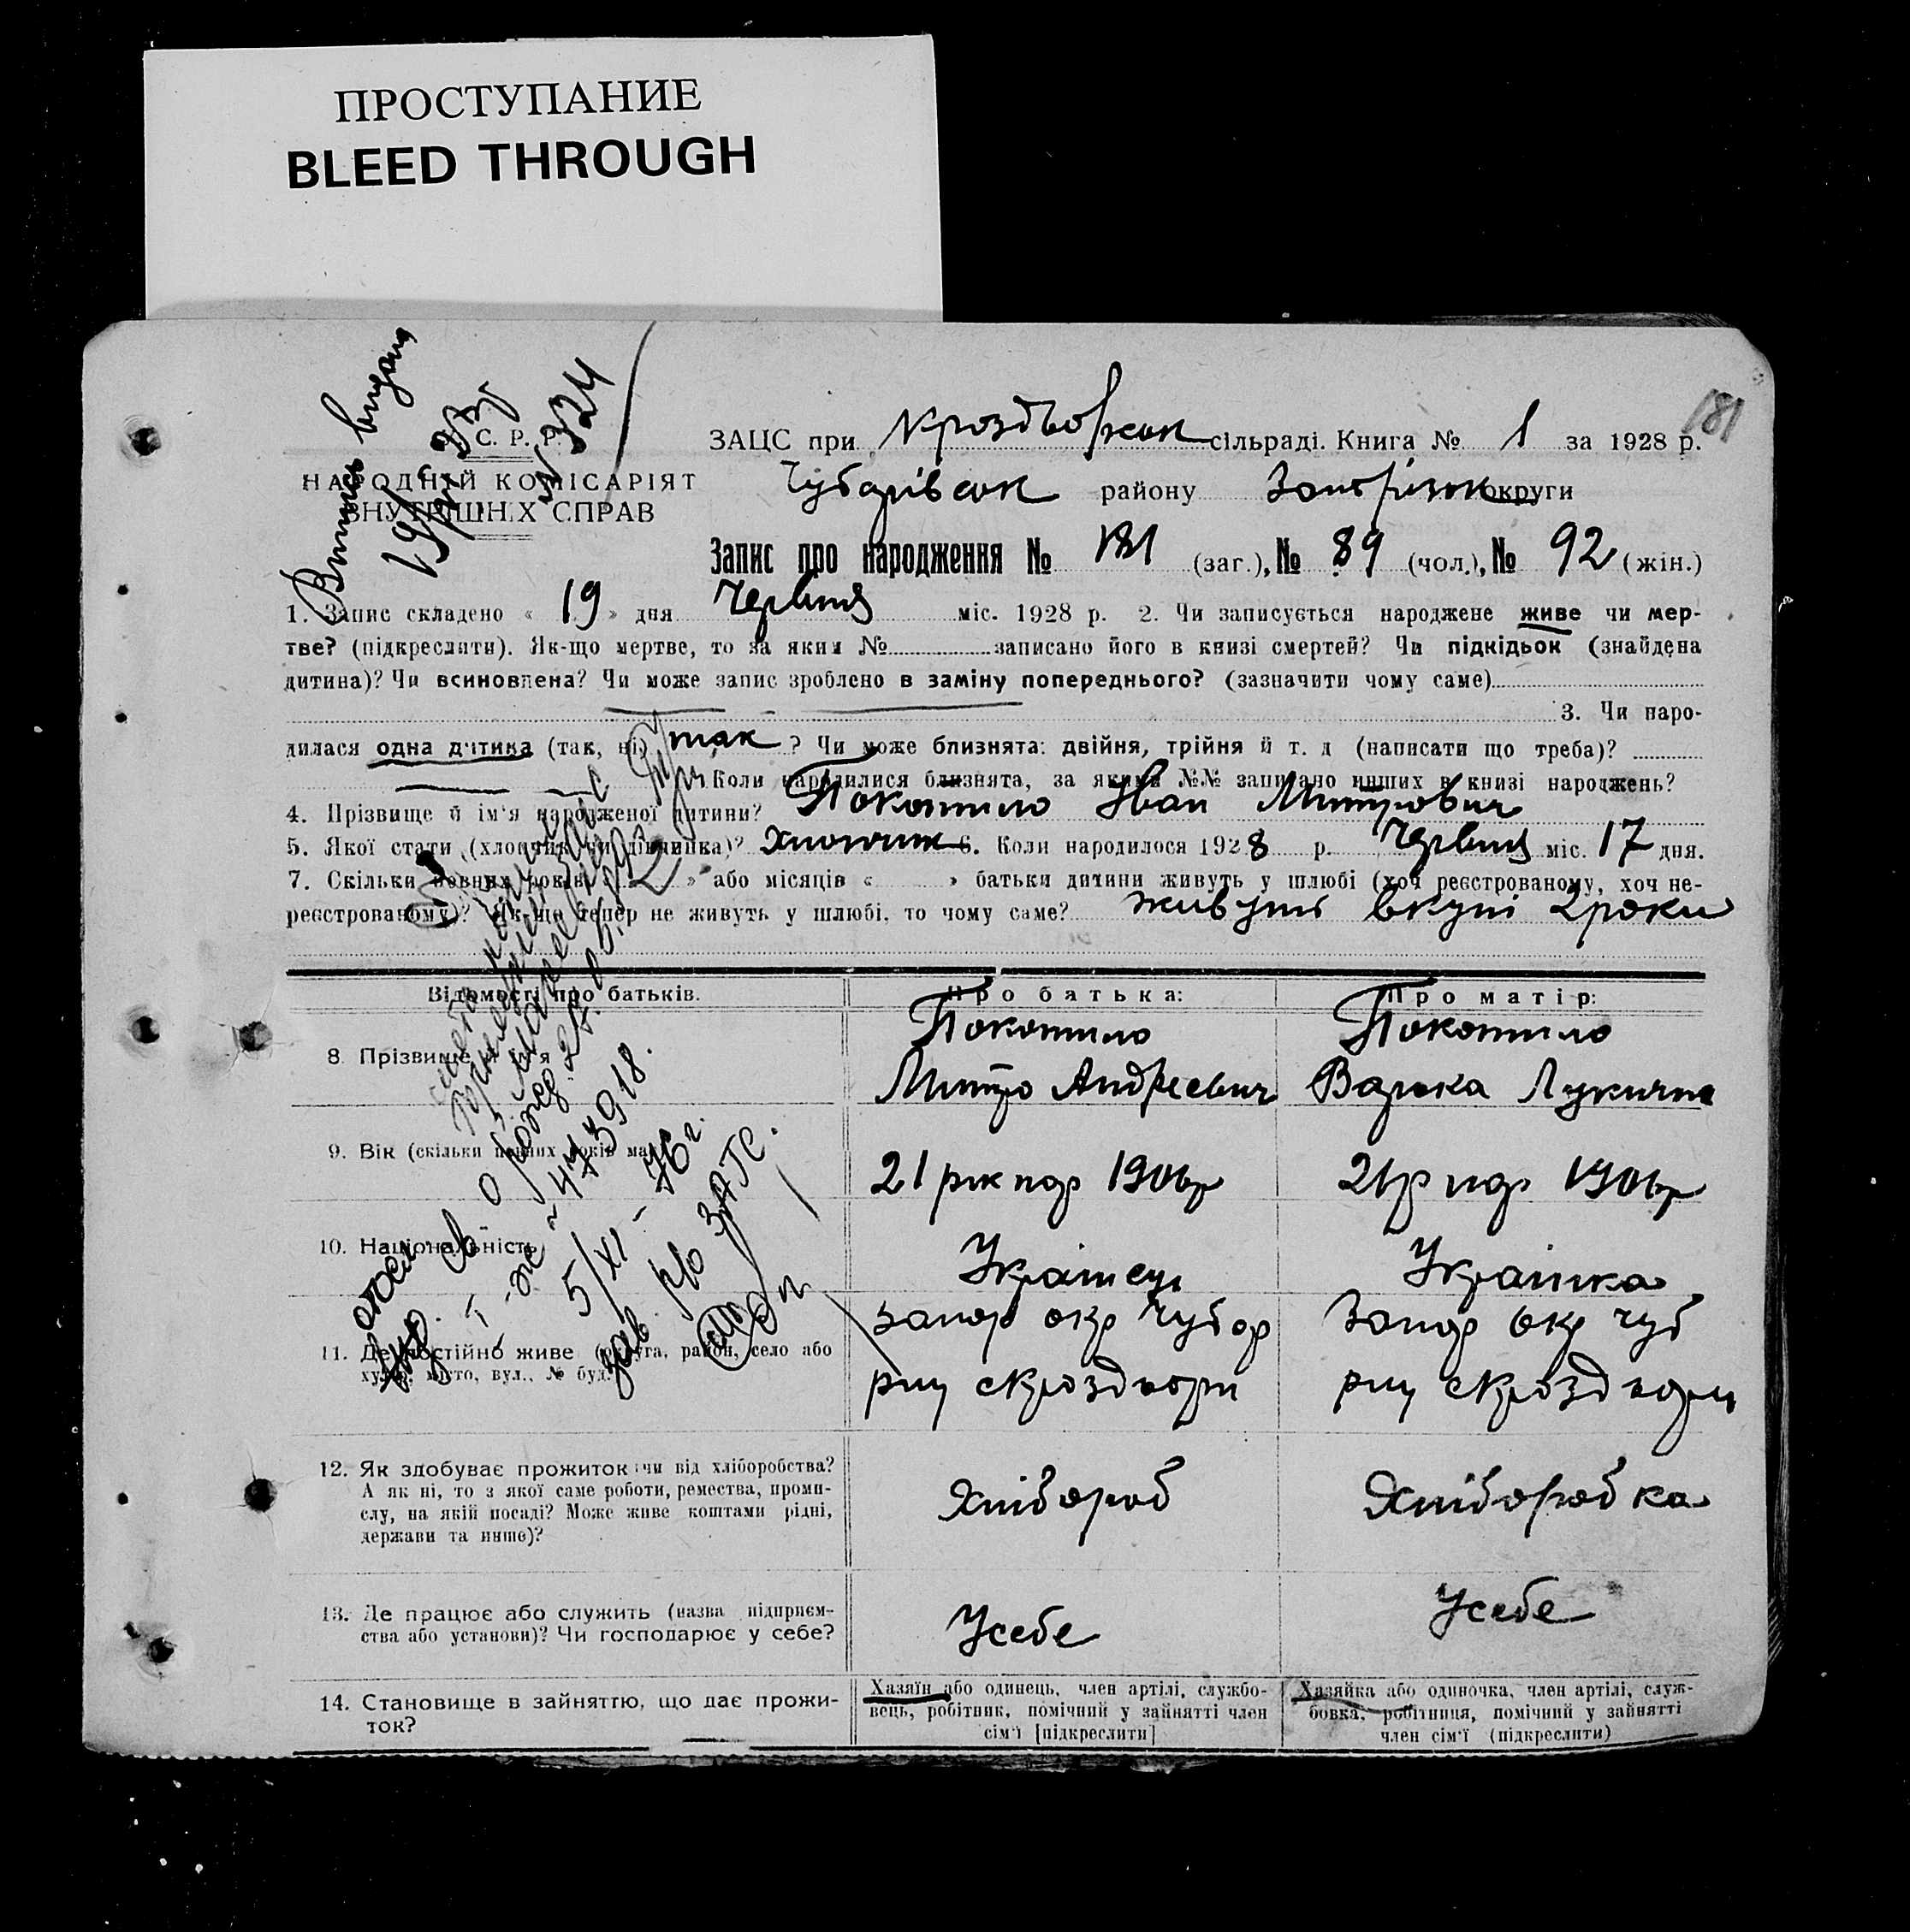 ПРОСТУПАНИЕ
BLEED THROUGH
181
С. Р. Р.
НАРОДНІЙ КОМІСАРІЯТ
ВНУТРІШНІХ СПРАВ
19
№ 324
ЗАЦС при сільраді. Книга № 1 за 1928 р.
Чубарівськ району округи
Запис про народження № 181 (заг.), № 89 (чол.), № 92 (жін.)
1. Запис складено « 19 » дня Червня міс. 1928 р. 2. Чи записується народжене живе чи мер-
тве? (підкреслити). Як-що мертве, то за яким № записано його в книзі смертей? Чи підкідьок (знайдена
дитина)? Чи всиновлена? Чи може запис зроблено в заміну попереднього? (зазначити чому саме)
3. Чи наро-
дилася одна дитина (так, ні) так ? Чи може близнята: двійня, трійня й т. д (написати що треба)?
Коли народилися близнята, за якими №№ записано инших в книзі народжень?
4. Прізвище й ім'я народженої дитини? Покотило Іван Митрович
5. Якої стати (хлопчик чи дівчинка)? Хлопчик 6. Коли народилося 1928 р. Червня міс. 17 дня.
7. Скільки повних років « 2 » або місяців « » батьки дитини живуть у шлюбі (хоч реєстрованому, хоч не-
реєстрованому)? Як-що тепер не живуть у шлюбі, то чому саме? живуть вкупі 2 роки
Відомості про батьків.
Про батька:
Про матір:
8. Прізвище й ім'я
Покотило
Митро Андреевич
Покотило
Варька Лукична
9. Вік (скільки повних років має)
21 рік нар 1906р
21 р нар 1906р
10. Національність
Українець
Українка
11. Де постійно живе (округа, район, село або
хутір, місто, вул., № буд.)
запор окр Чубар
рну с Кроздвори
Запор окр чуб
рну с Кроздвори
12. Як здобуває прожиток: чи від хліборобства?
А як ні, то з якої саме роботи, ремества, проми-
слу, на якій посаді? Може живе коштами рідні,
держави та инше)?
Хлібороб
Хлібаробка
13. Де працює або служить (назва підприєм-
ства або установи)? Чи господарює у себе?
Усебе
Усебе
14. Становище в зайняттю, що дає прожи-
ток?
Хазяїн або одинець, член артілі, службо-
вець, робітник, помічний у зайнятті член
сім'ї [підкреслити]
Хазяйка або одиночка, член артілі, служ-
бовка, робітниця, помічний у зайнятті
член сім'ї (підкреслити)
о рожд.
473918.
5/XI - 76 г.
зав. р/о ЗАГС.